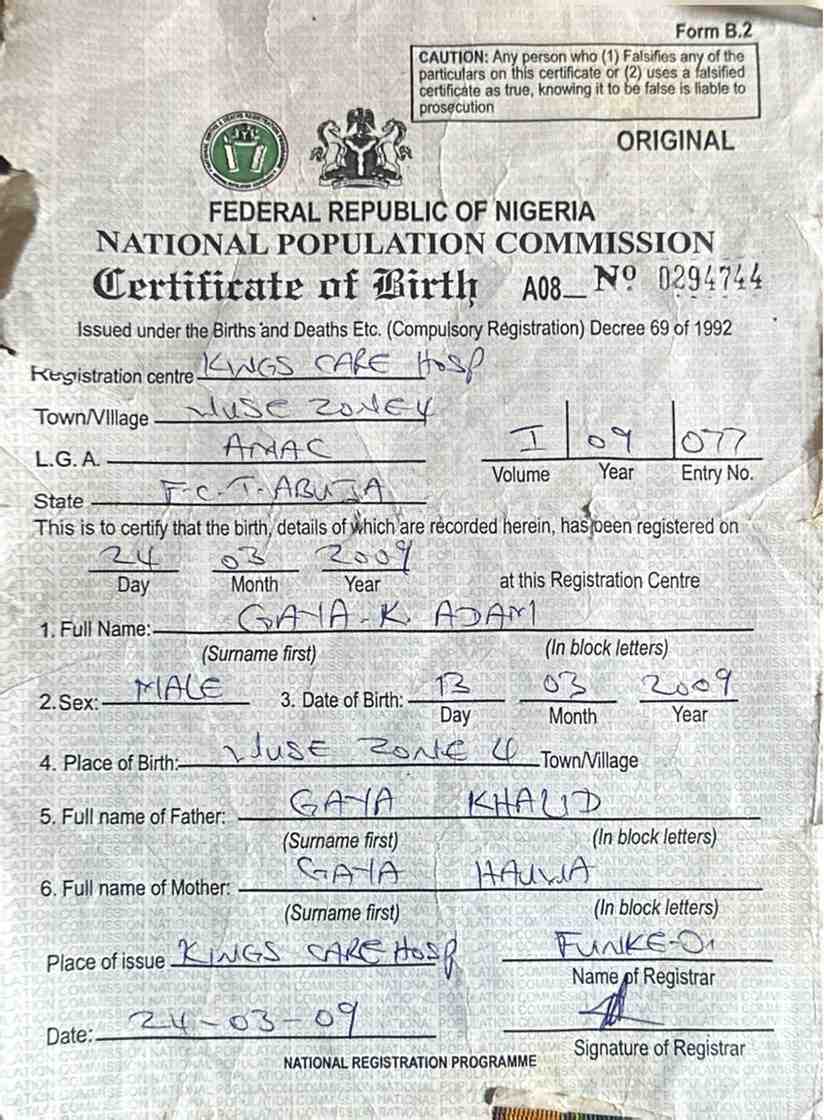 Form B.2
CAUTION: Any person who (1) Falsifies any of the
particulars on this certificate or (2) uses a falsified
certificate as true, knowing it to be false is liable to
prosecution
ORIGINAL
FEDERAL REPUBLIC OF NIGERIA
NATIONAL POPULATION COMMISSION
Certificate of Birth A08_ Nº 0294744
Issued under the Births and Deaths Etc. (Compulsory Registration) Decree 69 of 1992
Registration centre KINGS CARE HOSP
Town/VIllage WUSE ZONE 4
L.G.A. AMAC
I 09 077
Volume Year Entry No.
State F.C.T. ABUJA
This is to certify that the birth, details of which are recorded herein, has been registered on
24 03 2009
Day Month Year at this Registration Centre
1. Full Name: GAYA. K. ADAM
(Surname first) (In block letters)
2. Sex: MALE 3. Date of Birth: 13 03 2009
Day Month Year
4. Place of Birth: WUSE ZONE 4 Town/Village
5. Full name of Father: GAYA KHALID
(Surname first) (In block letters)
6. Full name of Mother: GAYA HAUWA
(Surname first) (In block letters)
Place of issue KINGS CARE HOSP FUNKE-O
Name of Registrar
Date: 24-03-09
Signature of Registrar
NATIONAL REGISTRATION PROGRAMME